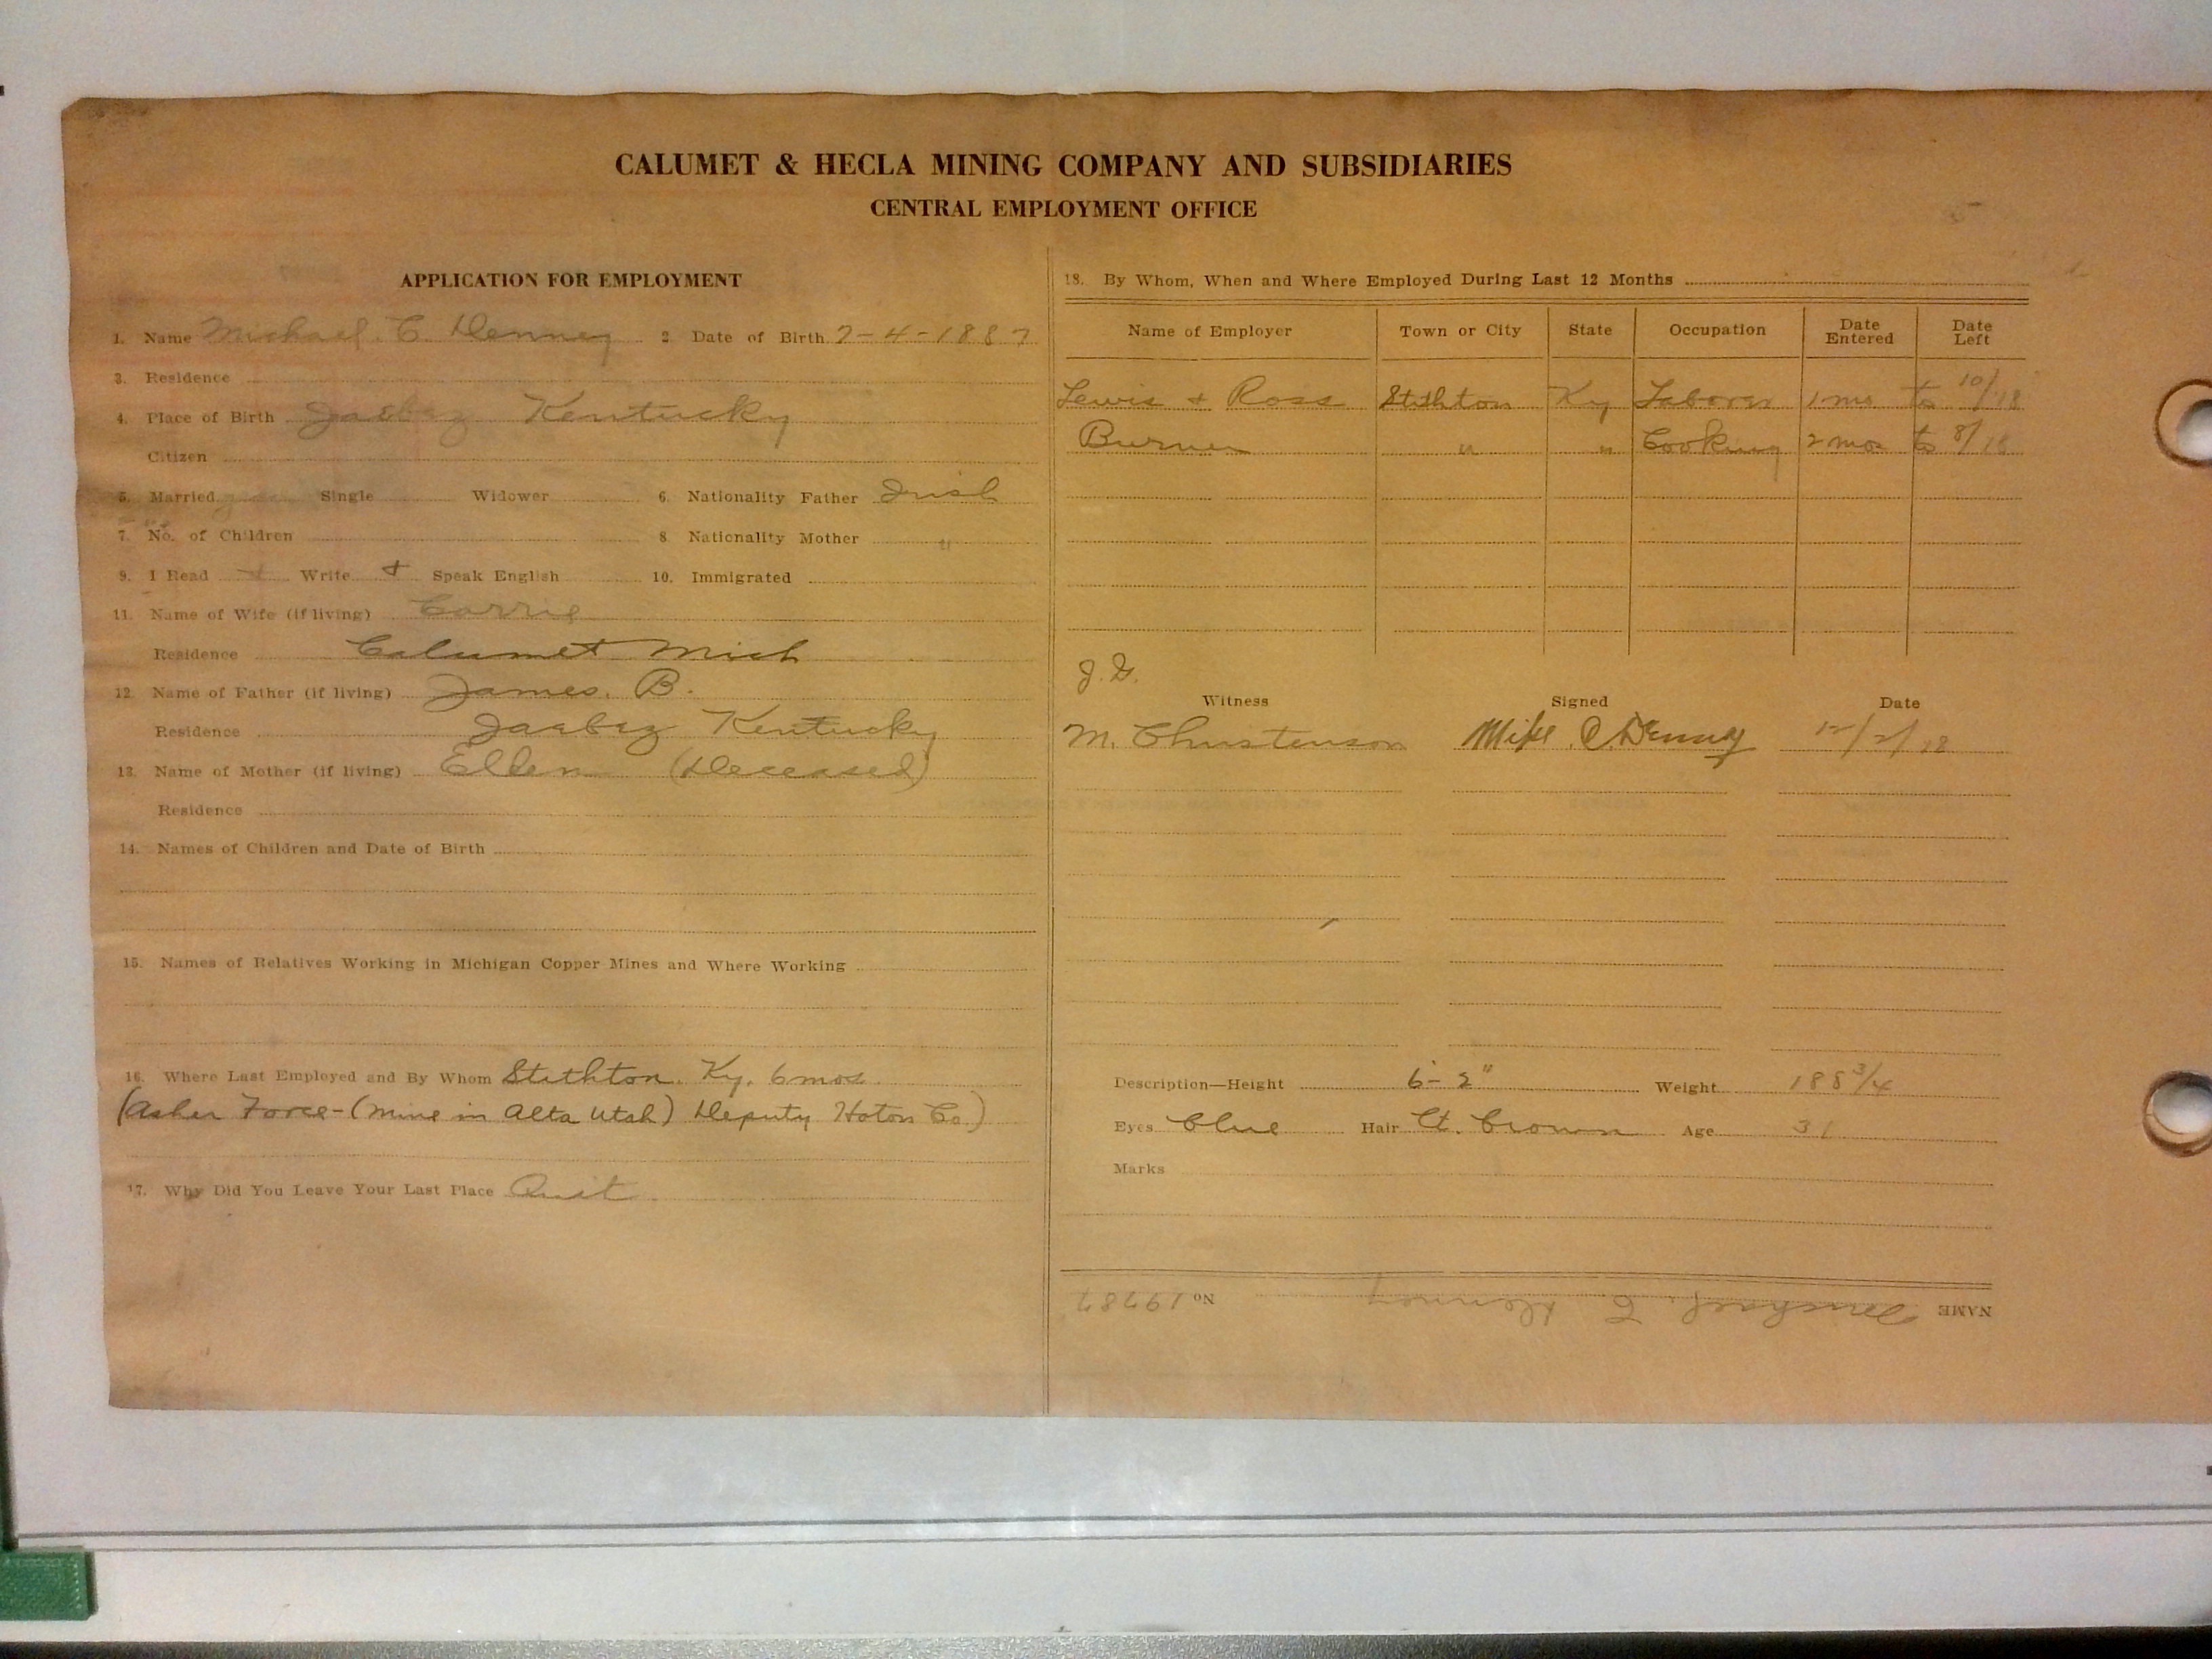 CALUMET & HECLA MINING COMPANY AND SUBSIDIARIES
CENTRAL EMPLOYMENT OFFICE
APPLICATION FOR EMPLOYMENT
1. Name Michael. C. Denney 2. Date of Birth 7-4-1887
3. Residence
4. Place of Birth Jaabez Kentucky
Citizen
5. Married Single Widower 6. Nationality Father Irish
7. No. of Children 8. Nationality Mother "
9. I Read + Write + Speak English 10. Immigrated
11. Name of Wife (if living) Carrie
Residence Calumet Mich
12. Name of Father (if living) James. B.
Residence Jaabez Kentucky
13. Name of Mother (if living) Ellen (Deceased)
Residence
14. Names of Children and Date of Birth
15. Names of Relatives Working in Michigan Copper Mines and Where Working
16. Where Last Employed and By Whom Stithton. Ky. 6 mos.
(Asher Force-(mine in Alta Utah) Deputy Hoton Co.)
17. Why Did You Leave Your Last Place Quit
18. By Whom, When and Where Employed During Last 12 Months
Name of Employer Town or City State Occupation Date Entered Date Left
Lewis + Ross Stithton Ky Laborer 1 mo to 10/18
Burner " " Cooking 2 mos to 8/18
J. D.
Witness Signed Date
M. Christenson Mike. C. Denney 12/2/18
Description—Height 6-2" Weight 188 3/4
Eyes blue Hair Lt. brown Age 31
Marks
NAME Michael. C. Denney No 19787